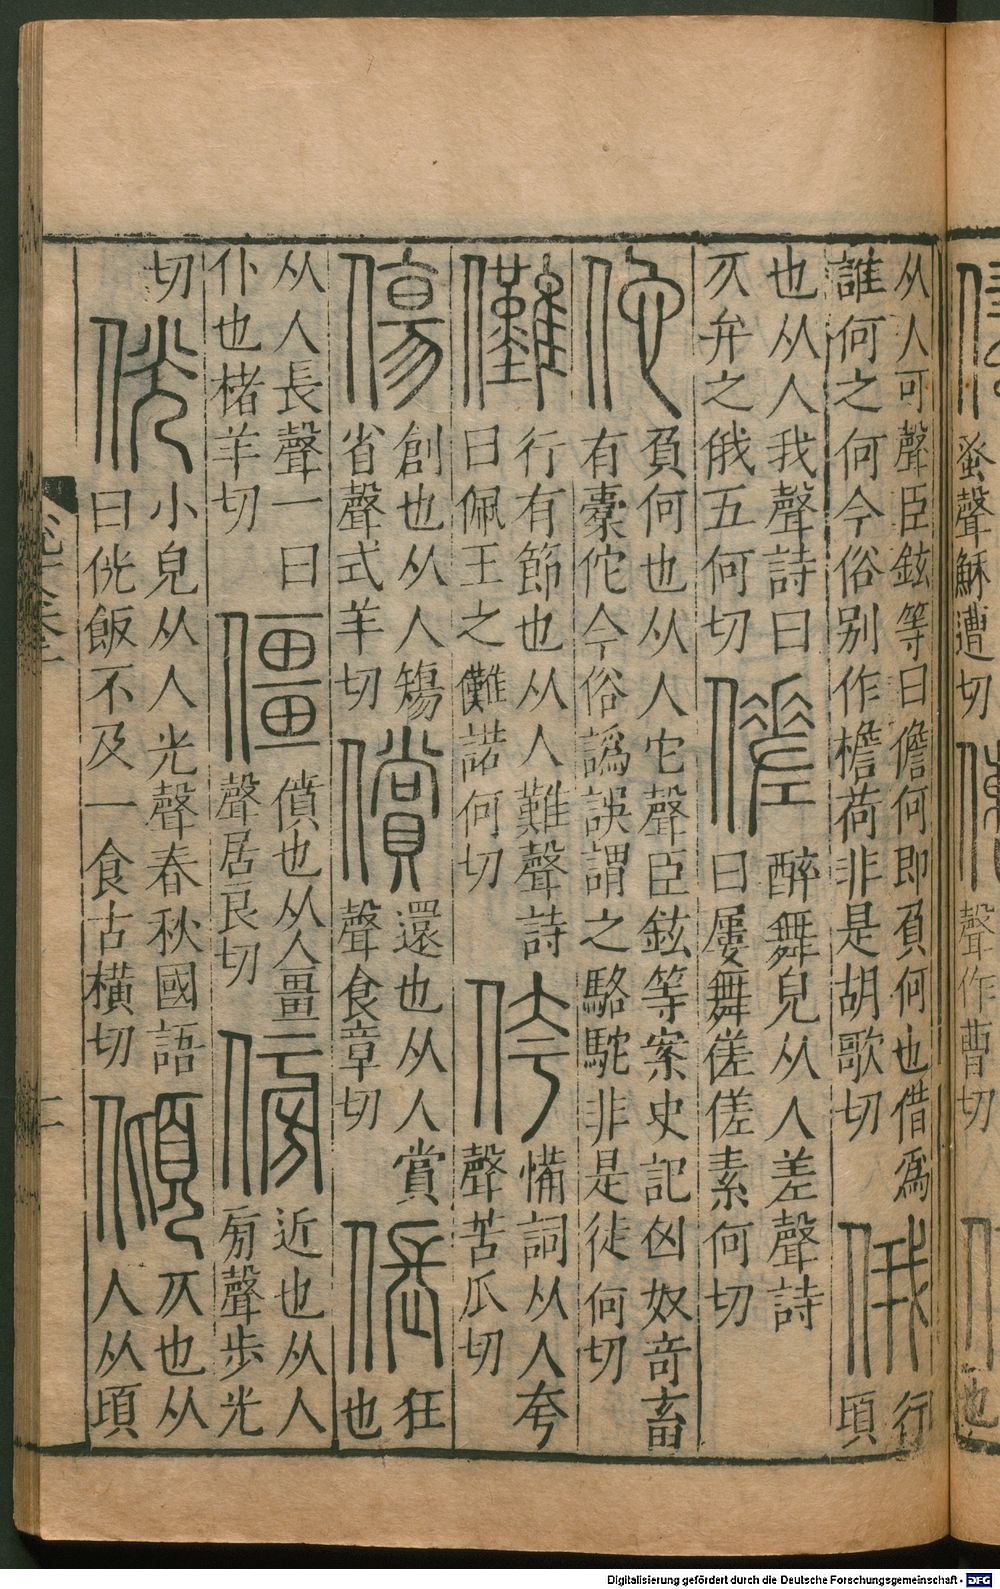 蚤聲穌遭切
聲作曹切
从人可聲臣鉉等曰儋何即負何也借爲
誰何之何今俗別作檐荷非是胡歌切
俄
行
頃
也从人我聲詩曰
仄弁之俄五何切
傞
醉舞皃从人差聲詩
曰屢舞傞傞素何切
佗
負何也从人它聲臣鉉等案史記匈奴奇畜
有橐佗今俗譌誤謂之駱駝非是徒何切
儺
行有節也从人難聲詩
曰佩玉之儺諾何切
侉
備詞从人夸
聲苦瓜切
傷
創也从人𥏻
省聲式羊切
償
還也从人賞
聲食章切
倀
狂
也
从人長聲一曰
仆也楮羊切
僵
僨也从人畺
聲居良切
傍
近也从人
㫄聲步光
切
侊
小皃从人光聲春秋國語
曰侊飯不及一食古橫切
傾
仄也从
人从頃